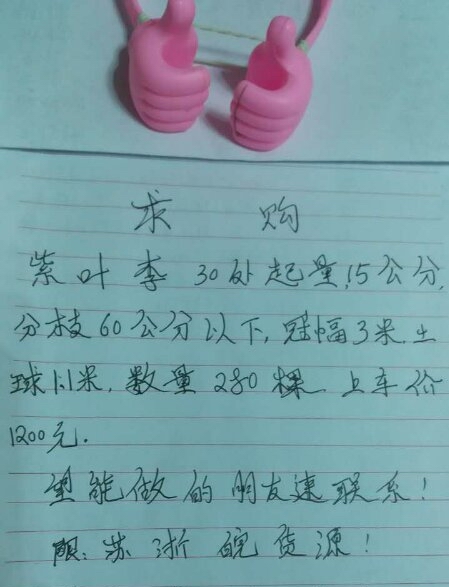 求购
紫叶李 30处起量,15公分,
分枝60公分以下,冠幅3米.土
球1.1米,数量280棵 上车价
1200元.
望能做的朋友速联系!
限:苏浙皖货源!